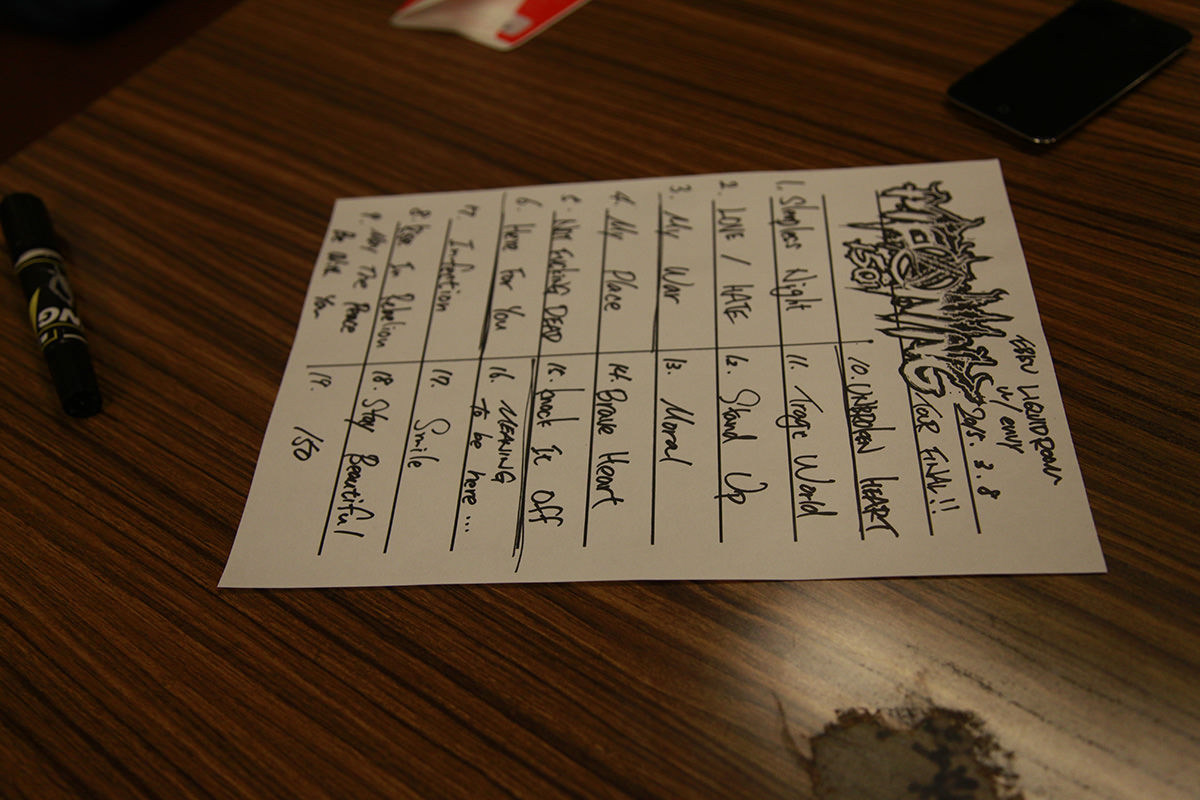 EBISU LIQUIDROOM
w/ envy
2015. 3. 8
TOUR FINAL!!
1. Starless Night
2. LOVE / HATE
3. My War
4. My Place
5. NOT FUCKING DEAD
6. Here For You
7. Infection
8. Rise In Rebellion
9. May The Peace
Be With You
10. UNBROKEN HEART
11. Tragic World
12. Stand Up
13. Moral
14. Brave Heart
15. Knock It Off
16. MEANING
to be here...
17. Smile
18. Stay Beautiful
19. 150